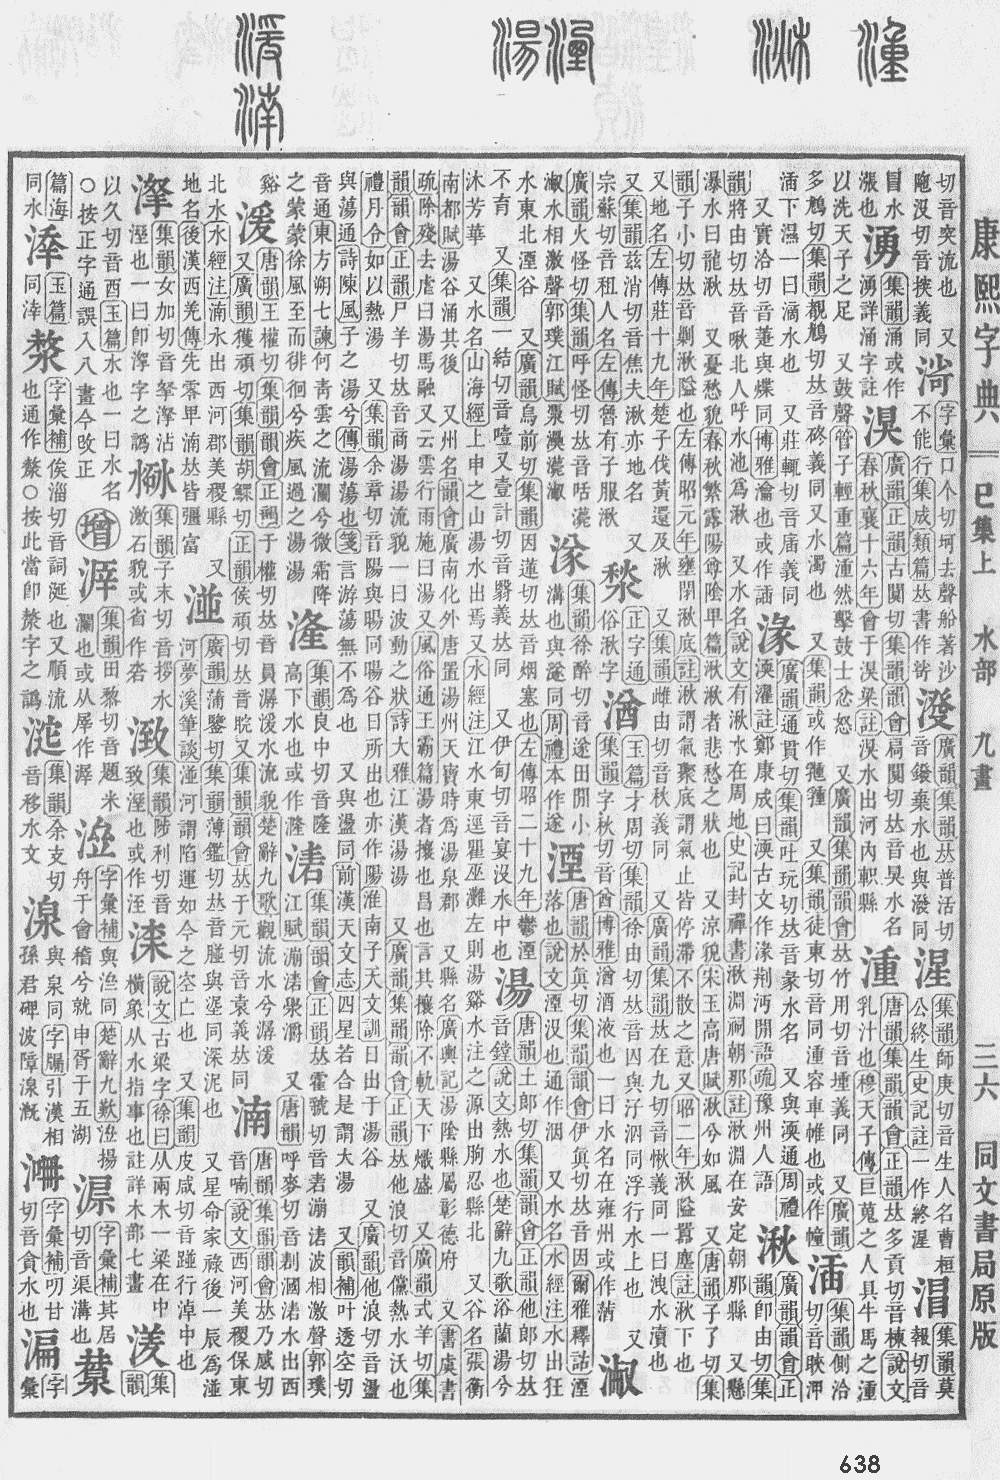 康熙字典 巳集上 水部 九畫 二六 同文書局原版
切音突流也 又
庬沒切音挟義同
渮
字彙口个切坷去聲船著沙
不能行集成類篇𠀤書作㟧
廣韻集韻𠀤普活切
音鏺棄水也與潑同
湦
集韻師庚切音生人名曹桓
公終生史記註一作終湦
集韻莫
報切音
冒水
漲也
湧
集韻涌或作
湧詳涌字註
湨
廣韻正韻古闃切集韻韻會扃闃切𠀤音昊水名
春秋襄十六年會于湨梁註湨水出河內軹縣
湩
唐韻集韻韻會正韻𠀤多貢切音棟說文
乳汁也穆天子傳巨蒐之人具牛馬之湩
以洗天子之足 又鼓聲管子輕重篇湩然擊鼓士忿怒 又廣韻集韻韻會𠀤竹用切音堹義同 又廣韻
多鵚切集韻覩鵚切𠀤音義同又水濁也 又集韻或作 又集韻徒東切音同湩容車帷也或作幢
集韻側洽
切音眨
下濕一曰滴水也 又莊輒切音義同
又實洽切音萐同博雅瀹也或作
湪
廣韻通貫切集韻吐玩切𠀤音彖水名 又與渜通周禮
渜濯註鄭康成曰渜古文作湪荆沔閒語疏豫州人語
湫
廣韻韻會正
韻卽由切集
韻將由切𠀤音啾北人呼水池爲湫 又水名說文有湫水在周地史記封禪書湫淵祠朝那註湫淵在安定朝那縣 又懸
瀑水曰龍湫 又憂愁貌春秋繁露陽尊陰𤰞篇湫湫者悲愁之狀也 又涼貌宋玉高唐賦湫兮如風 又唐韻子了切集
韻子小切𠀤音剿湫隘也左傳昭元年壅閉湫底註湫謂氣聚底謂氣止皆停滯不散之意又昭二年湫隘囂塵註湫下也
又地名左傳莊十九年楚子伐黃還及湫 又集韻雌由切音秋義同 又廣韻集韻𠀤在九切音愀義同一曰洩水瀆也
又集韻茲消切音焦夫湫亦地名 又
宗蘇切音租人名左傳魯有子服湫
湬
正字通
俗湫字
湭
玉篇才周切集韻徐由切𠀤音囚與汓泅同浮行水上也 又
集韻字秋切音酋博雅湭酒液也一曰水名在雍州或作
廣韻火怪切集韻呼怪切𠀤音咶
水相激聲郭璞江賦
㴚
集韻徐醉切音遂田閒小
溝也與遂同周禮本作遂
湮
唐韻於眞切集韻韻會伊眞切𠀤音因爾雅釋詁湮
落也說文湮沒也通作 又水名水經注水出狂
水東北湮谷 又廣韻烏前切集韻因蓮切𠀤音烟塞也左傳昭二十九年鬱湮
不育 又集韻一結切音噎又壹計切音翳義𠀤同 又伊甸切音宴沒水中也
湯
唐韻土郎切集韻韻會正韻他郎切𠀤
音鏜說文熱水也楚辭九歌浴蘭湯兮
沐芳華 又水名山海經上申之山湯水出焉又水經注江水東逕瞿巫灘左則湯谿水注之源出朐忍縣北 又谷名張衡
南都賦湯谷涌其後 又州名韻會廣南化外唐置湯州天寶時爲湯泉郡 又縣名廣輿記湯陰縣屬彰德府 又書虞書
疏除殘去虐曰湯馬融又云雲行雨施曰湯又風俗通王霸篇湯者攘也昌也言其攘除不軌天下熾盛 又廣韻式羊切集
韻韻會正韻尸羊切𠀤音商湯湯流貌一曰波動之狀詩大雅江漢湯湯 又廣韻集韻韻會正韻𠀤他浪切音儻熱水沃也
禮月令如以熱湯 又集韻余章切音陽與暘同暘谷日所出也亦作陽淮南子天文訓日出于湯谷 又廣韻他浪切音盪
與蕩通詩陳風子之湯兮傳湯蕩也箋言游蕩無不爲也 又與盪同前漢天文志四星若合是謂大湯 又韻補叶透空切
音通東方朔七諫何靑雲之流瀾兮微霜降
之蒙蒙徐風至而徘徊兮疾風過之湯湯
湰
集韻良中切音隆
高下水也或作
湱
集韻韻會正韻𠀤霍號切音砉漰湱波相激聲郭璞
江賦漰湱澩灂 又唐韻呼麥切音劃湱水出西
谿
湲
唐韻王權切集韻韻會正韻于權切𠀤音員潺湲水流貌楚辭九歌觀流水兮潺湲
又廣韻獲頑切集韻胡鰥切正韻侯頑切𠀤音 又集韻韻會𠀤于元切音袁義𠀤同
湳
唐韻集韻韻會𠀤乃感切
音喃說文西河美稷保東
北水水經注湳水出西河郡美稷縣 又
地名後漢西羌傳先零卑湳𠀤皆彊富
湴
廣韻蒲鑒切集韻薄鑑切𠀤音與埿同深泥也 又星命家祿後一辰爲湴
河夢溪筆談湴河謂陷運如今之空亡也 又集韻皮咸切音踫行淖中也
集韻女加切音拏沾
溼也一曰卽字之譌
集韻子末切音拶水
激石貌或省作
集韻陟利切音
致溼也或作洷
說文古梁字徐曰从兩木一梁在中
橫象从水指事也註詳木部七畫
湵
集
韻
以久切音酉玉篇水也一曰水名
○按正字通誤入八畫今攺正
增
集韻田黎切音題米
瀾也或从犀作
字彙補與同楚辭九歎揚
舟于會稽兮就申胥于五湖
字彙補其居
切音渠溝也
篇海
同水
玉篇
同
字彙補俟淄切音詞涎也又順流
也通作漦○按此當卽漦字之譌
集韻余支切
音移水文
湶
與泉同字彙引漢相
孫君碑波障湶溉
字彙補叨甘
切音貪水也
字
彙
638